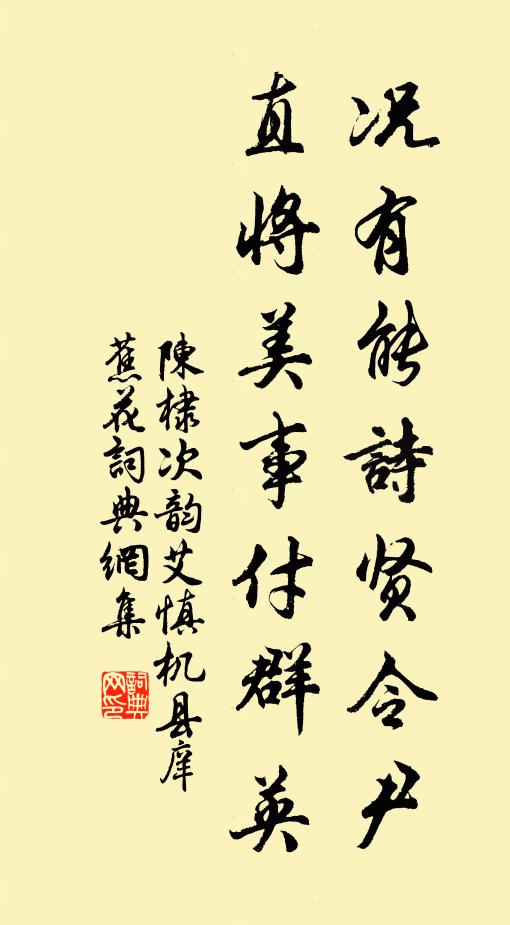 况有能詩贤令尹
直將美事付群英
陳棣次韵艾慎机县庠
蕉花詞典網集
詞典
网印